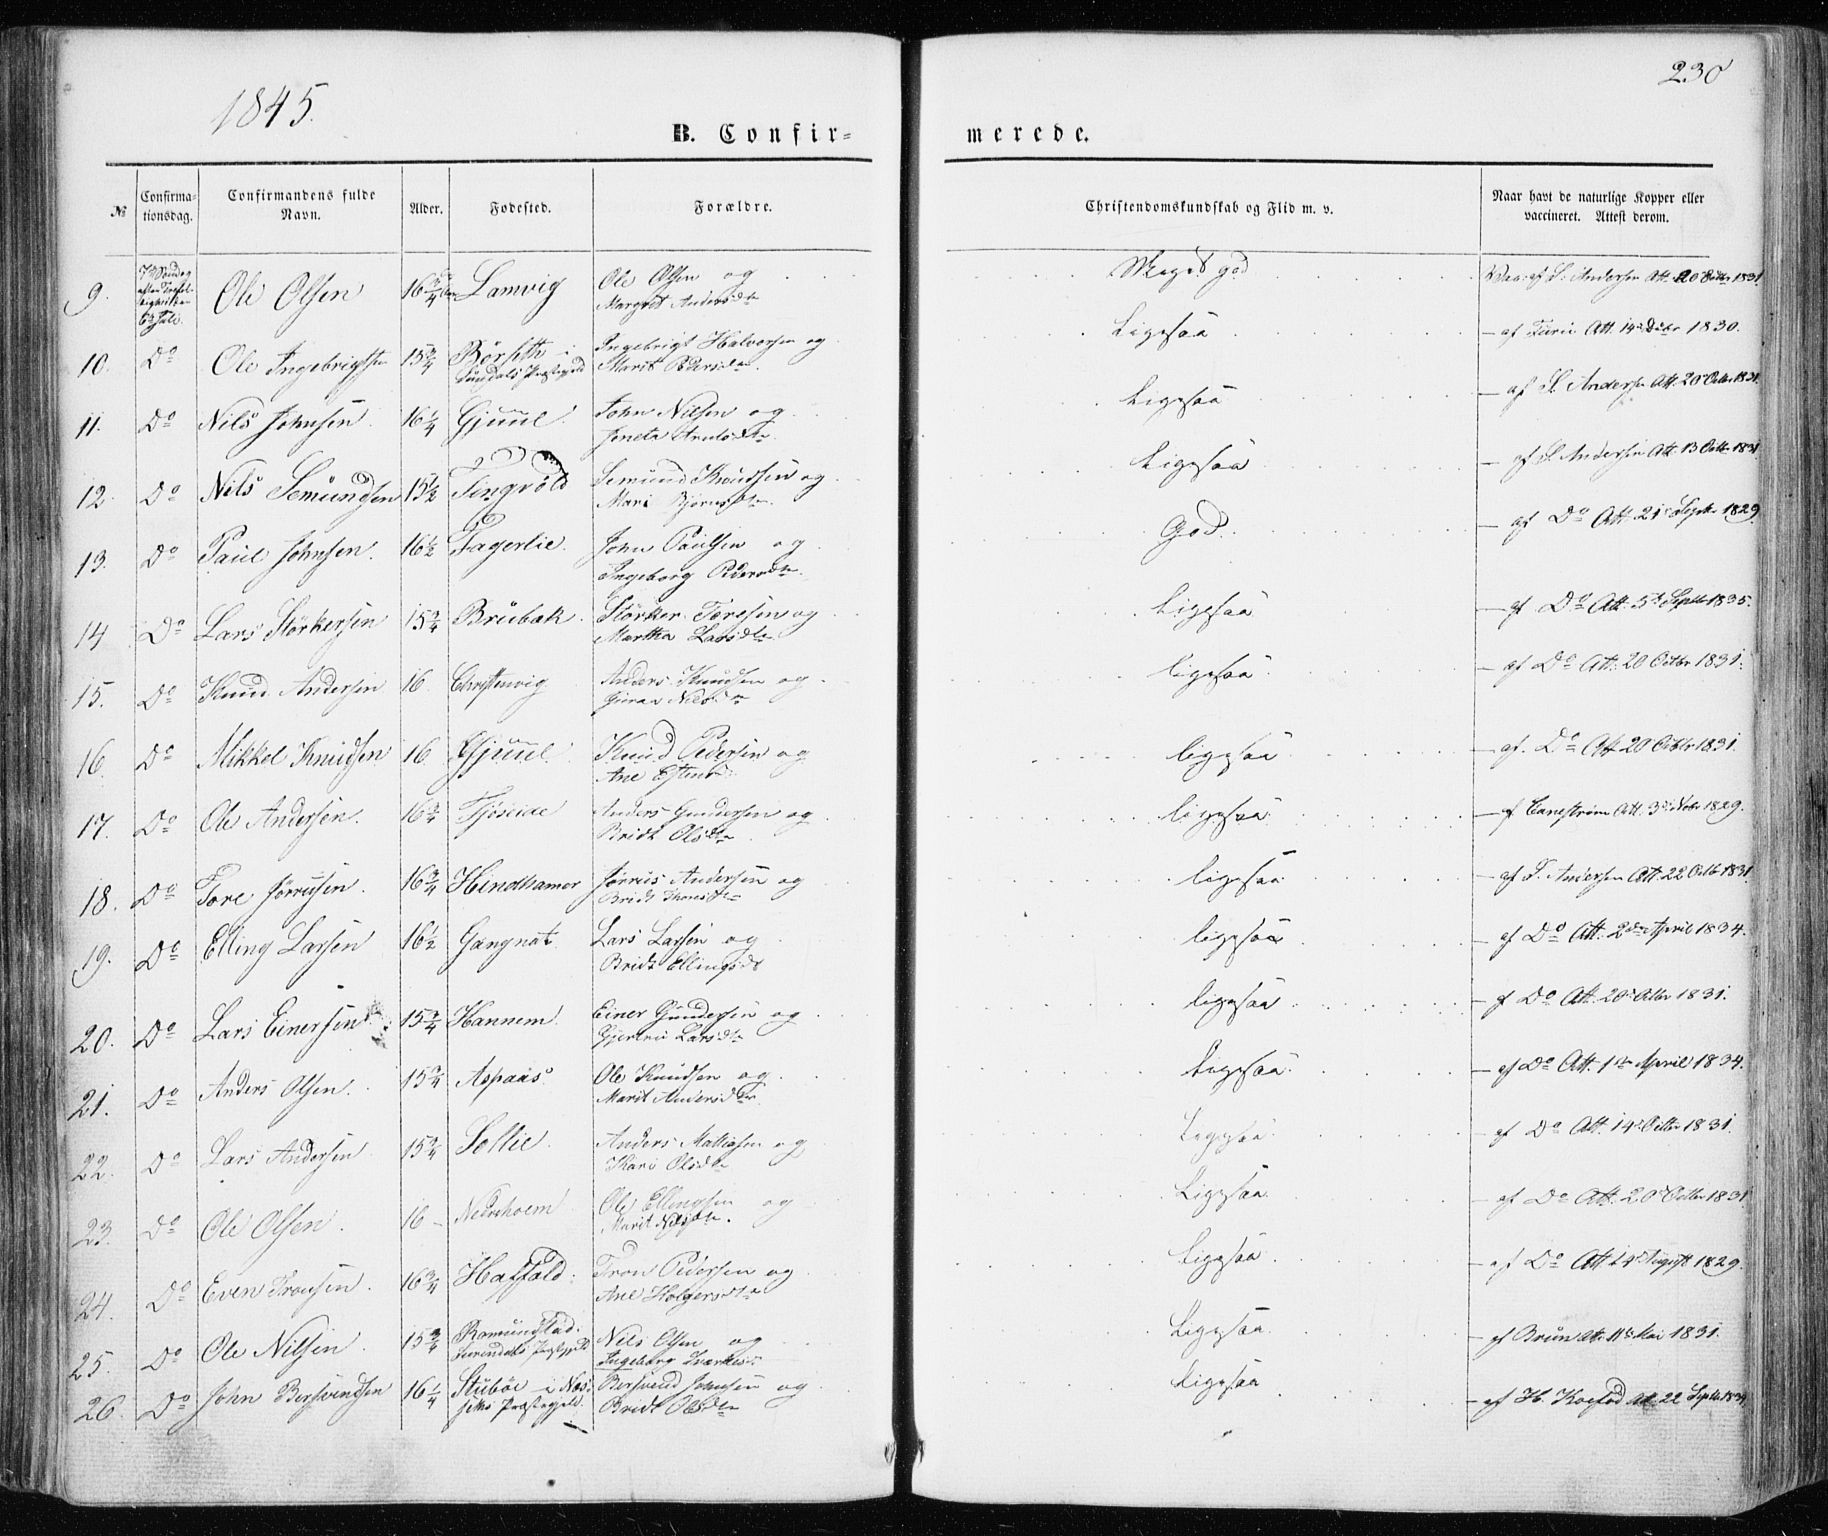 1845.
230
B. Confir-
merede.
№
Confirma-
tionsdag.
Confirmandens fulde
Navn.
Alder.
Fødested.
Forældre.
Christendomskundskab og Flid m. v.
Naar havt de naturlige Kopper eller
vaccineret. Attest derom.
9. Ole Olsen 16 3/4 Lamvig Ole Olsen og Meget god
Margret Andersdtr
10. Do Ole Ingebrigtsen 15 3/4 Børseth i Ingebrigt Halvorsen og Ligesaa – af Att. 14 Dcbr 1830.
Sundals Præstegjeld Marit Pedersdtr
11. Do Nils Johnsen 16 1/4 Gjuul John Nilsen og Ligesaa – af S. Andersen Att. 20 Octbr 1831.
12. Do Nils Semundsen 15 1/2 Tingvold Semund Knudsen og Ligesaa – af S. Andersen Att. 13 Octbr 1831
Mari Bjørnsdtr
13. Do Paul Johnsen 16 1/2 Fagerlie. John Paulsen og God. – af Do Att. 21 Septbr 1829.
Ingeborg Pedersdtr.
14 Do Lars Størkersen 15 3/4 Brubæk. Størker Toresen og Ligesaa – af Do Att. 5te Septbr 1835.
Martha Larsdtr
15. Do Knud Andersen 16 Christenvig Anders Knudsen og ligesaa – af Do Att. 20 Octbr 1831.
16. Do Mikkel Knudsen 16 Gjuul Knud Pedersen og ligesaa – af Do Att. 20 Octbr 1831.
Ane
17. Do Ole Andersen. 16 3/4 Anders Gundersen og ligesaa – af Att. 3die Nvbr 1829.
Bridt Olsdtr
18. Do Tore 16 3/4 Hindhamer Andersen og ligesaa – af S. Andersen Att. 22 Octbr 1831.
Bridt
19. Do Elling Larsen 16 1/2 Gangnat. Lars Larsen og ligesaa – af Do Att. 2den April 1834.
Bridt Ellingsdtr
20. Do Lars Einersen 15 3/4 Hannem. Einer Gundersen og ligesaa – af Do Att. 20 Octbr 1831.
Larsdtr
21. Do Anders Olsen. 15 3/4 Aspaas. Ole Knudsen og ligesaa – af Do Att. 1ste April 1834.
Marit Andersdtr
22. Do Lars Andersen 15 3/4 Sollie. Anders Mathiasen og Ligesaa – af Do Att. 14 Octbr 1831.
Kari Olsdtr
23. Do Ole Olsen. 16 – Ole Ellingsen og Ligesaa – af Do Att. 20 Octbr 1831
Marit Nilsdtr.
24. Do Even Tronsen. 16 3/4 Haffald. Tron Pedersen og Ligesaa – af Do Att. 14 August 1829.
Ane Holgersdtr
25. Do Ole Nilsen 15 3/4 Romundstad Nils Olsen og Ligesaa – af Brun Att. 11te Mai 1831.
Surendals Præstegjeld Ingeborg
26. Do John Bersvendsen 16 1/4 Stubøe i Næs- Bersvend Johnsen og Ligesaa – af H. Koefod Att. 22 Septbr
sets Præstegjeld. Bridt Olsdtr